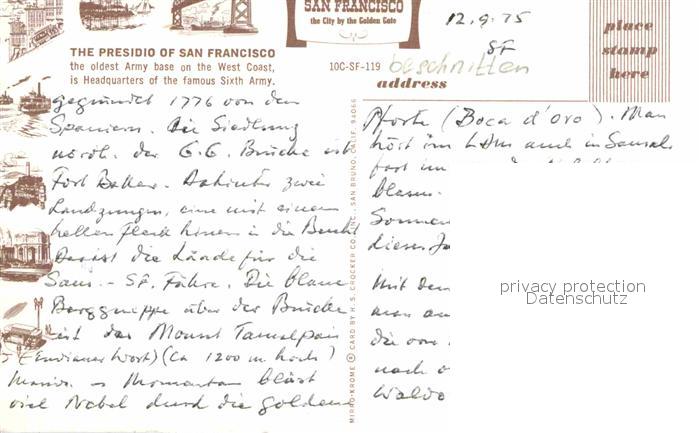 SAN FRANCISCO
the City by the Golden Gate
THE PRESIDIO OF SAN FRANCISCO
the oldest Army base on the West Coast,
is Headquarters of the famous Sixth Army.
10C-SF-119
address
place
stamp
here
12.9.75
SF
beschnitten
gegründet 1776 von den
Spaniern. Die Siedlung
nördl. der G.G. Brücke ist
Fort Baker. Dahinter zwei
Landzungen, eine mit einem
hellen Fleck hinein in die Bucht
Dort ist die Lände für die
Saus.-SF. Fähre. Die blaue
Berggruppe über der Brücke
ist der Mount Tamalpais
(Indianer Wort) (Ca 1200 m hoch)
Momentan bläst
viel Nebel durch die goldene
MIRRO-KROME ® CARD BY H. S. CROCKER CO., INC., SAN BRUNO, CALIF. 94066
Pforte (Boca d'oro). Man
hört im auch in Sausal.
fast im
blasen.
Sommer
dieses Ja
Mit dem
man an
die von
nach
Waldo
privacy protection
Datenschutz